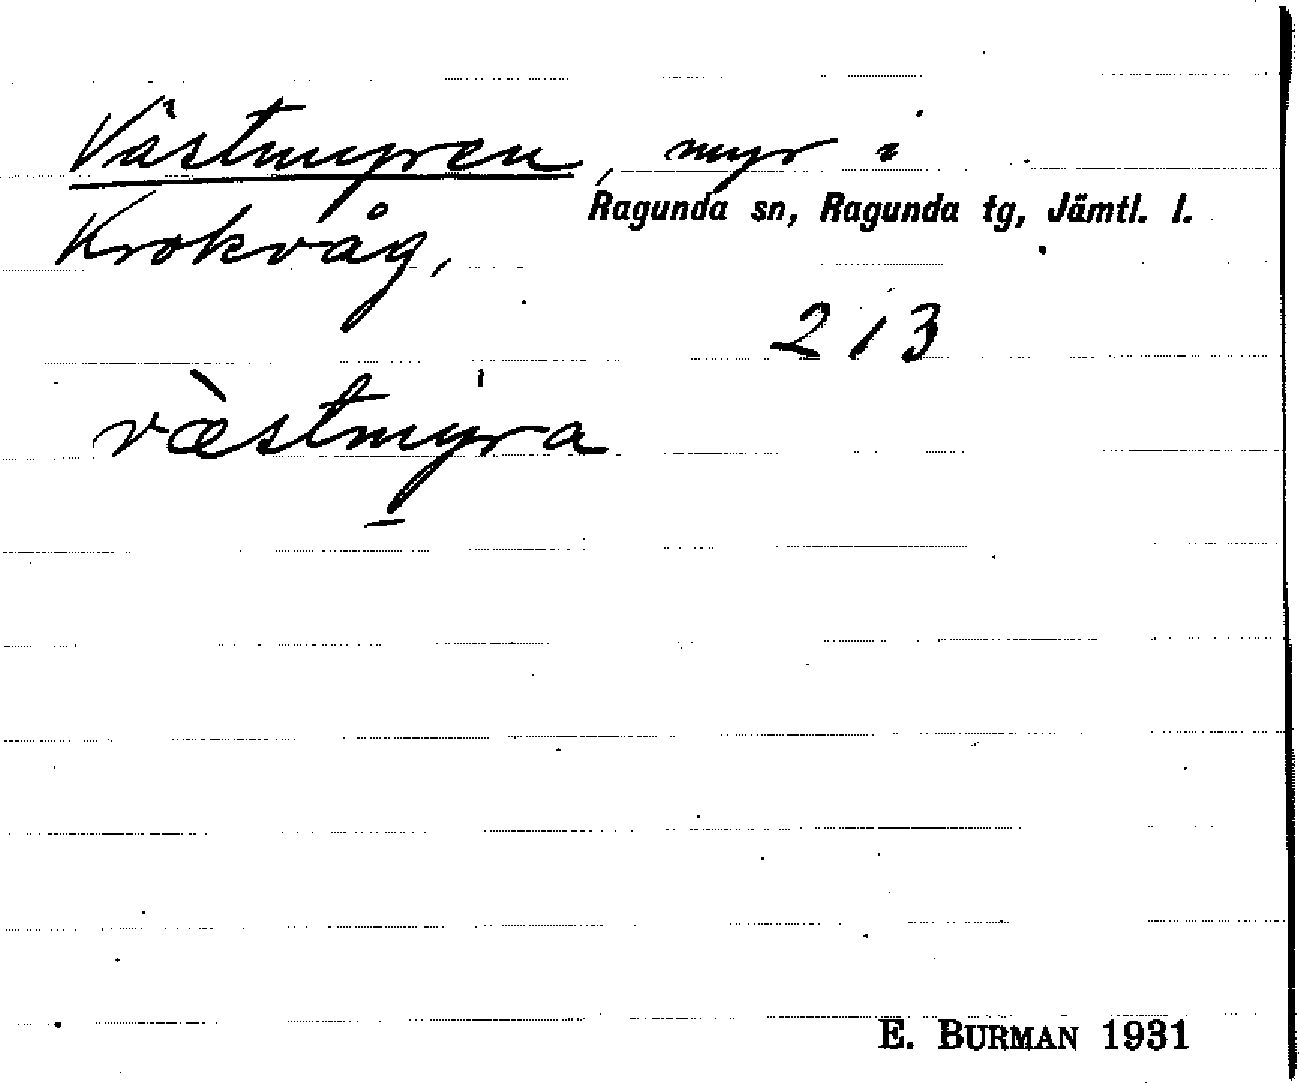 Västmyren, myr i
Ragunda sn, Ragunda tg, Jämtl. l.
Krokvåg,
213
væ̀stmyra
E. BURMAN 1931